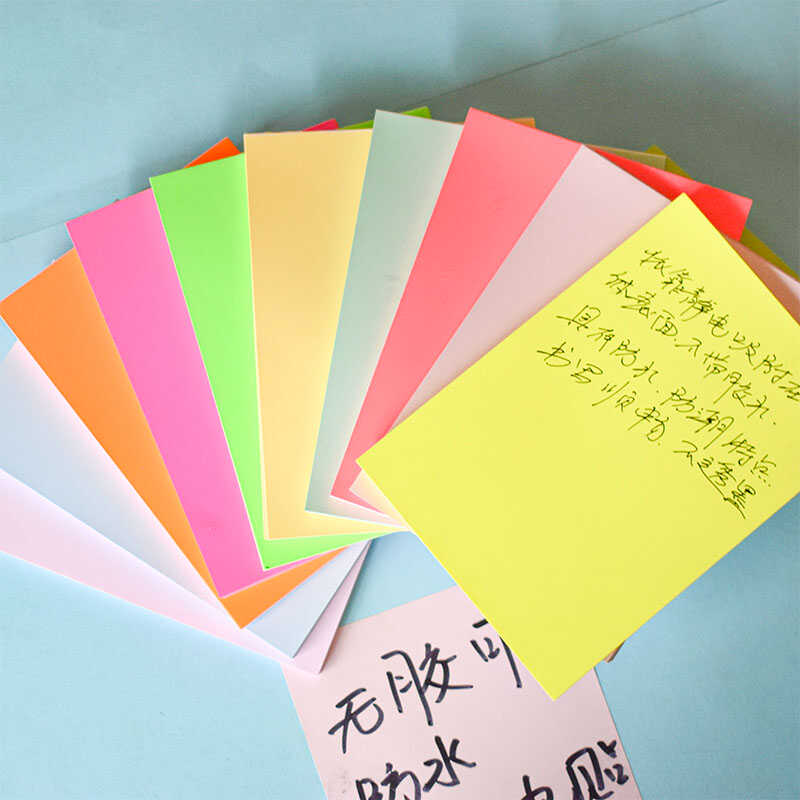 依靠静电吸附在
体表面.不带胶水.
具有防水.防潮特点.
书写顺畅.不走墨
无胶可
防水
电贴